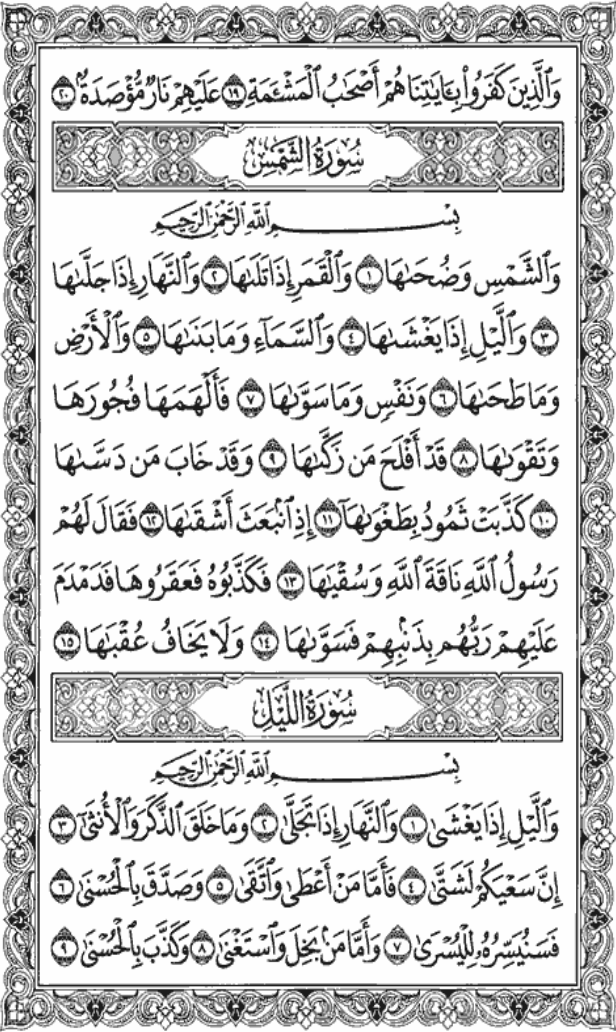 وَٱلَّذِينَ كَفَرُواْ بِـَٔايَٰتِنَا هُمۡ أَصۡحَٰبُ ٱلۡمَشۡـَٔمَةِ ١٩ عَلَيۡهِمۡ نَارٞ مُّؤۡصَدَةُۢ ٢٠
سُورَةُ الشَّمْسِ
بِسۡمِ ٱللَّهِ ٱلرَّحۡمَٰنِ ٱلرَّحِيمِ
وَٱلشَّمۡسِ وَضُحَىٰهَا ١ وَٱلۡقَمَرِ إِذَا تَلَىٰهَا ٢ وَٱلنَّهَارِ إِذَا جَلَّىٰهَا
٣ وَٱلَّيۡلِ إِذَا يَغۡشَىٰهَا ٤ وَٱلسَّمَآءِ وَمَا بَنَىٰهَا ٥ وَٱلۡأَرۡضِ
وَمَا طَحَىٰهَا ٦ وَنَفۡسٖ وَمَا سَوَّىٰهَا ٧ فَأَلۡهَمَهَا فُجُورَهَا
وَتَقۡوَىٰهَا ٨ قَدۡ أَفۡلَحَ مَن زَكَّىٰهَا ٩ وَقَدۡ خَابَ مَن دَسَّىٰهَا
١٠ كَذَّبَتۡ ثَمُودُ بِطَغۡوَىٰهَآ ١١ إِذِ ٱنۢبَعَثَ أَشۡقَىٰهَا ١٢ فَقَالَ لَهُمۡ
رَسُولُ ٱللَّهِ نَاقَةَ ٱللَّهِ وَسُقۡيَٰهَا ١٣ فَكَذَّبُوهُ فَعَقَرُوهَا فَدَمۡدَمَ
عَلَيۡهِمۡ رَبُّهُم بِذَنۢبِهِمۡ فَسَوَّىٰهَا ١٤ وَلَا يَخَافُ عُقۡبَٰهَا ١٥
سُورَةُ اللَّيْلِ
بِسۡمِ ٱللَّهِ ٱلرَّحۡمَٰنِ ٱلرَّحِيمِ
وَٱلَّيۡلِ إِذَا يَغۡشَىٰ ١ وَٱلنَّهَارِ إِذَا تَجَلَّىٰ ٢ وَمَا خَلَقَ ٱلذَّكَرَ وَٱلۡأُنثَىٰٓ ٣
إِنَّ سَعۡيَكُمۡ لَشَتَّىٰ ٤ فَأَمَّا مَنۡ أَعۡطَىٰ وَٱتَّقَىٰ ٥ وَصَدَّقَ بِٱلۡحُسۡنَىٰ ٦
فَسَنُيَسِّرُهُۥ لِلۡيُسۡرَىٰ ٧ وَأَمَّا مَنۢ بَخِلَ وَٱسۡتَغۡنَىٰ ٨ وَكَذَّبَ بِٱلۡحُسۡنَىٰ ٩